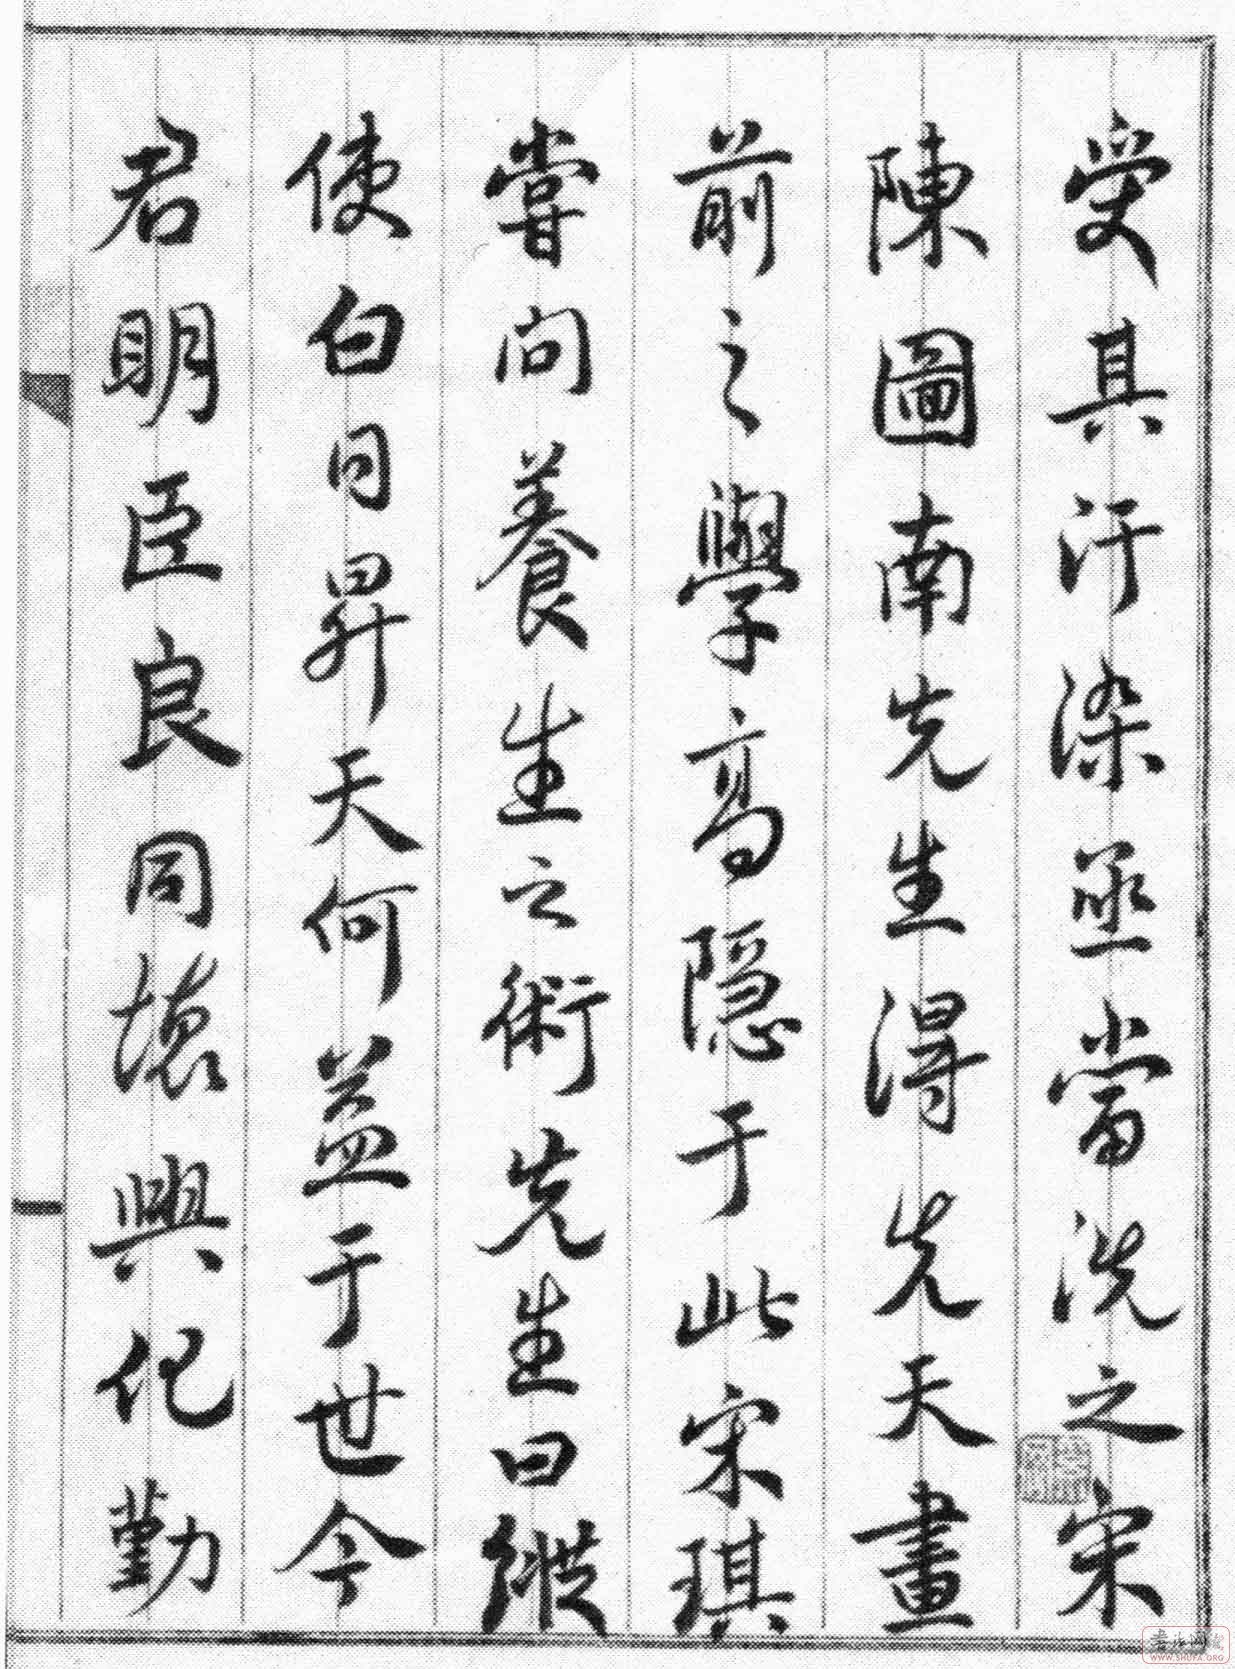 受其汙染亟當洗之宋
陳圖南先生得先天畫
前之學高隱于此宋琪
嘗問養生之術先生曰縱
使白日昇天何益于世今
君明臣良同懷興化勤
WWW.SHUFA.ORG